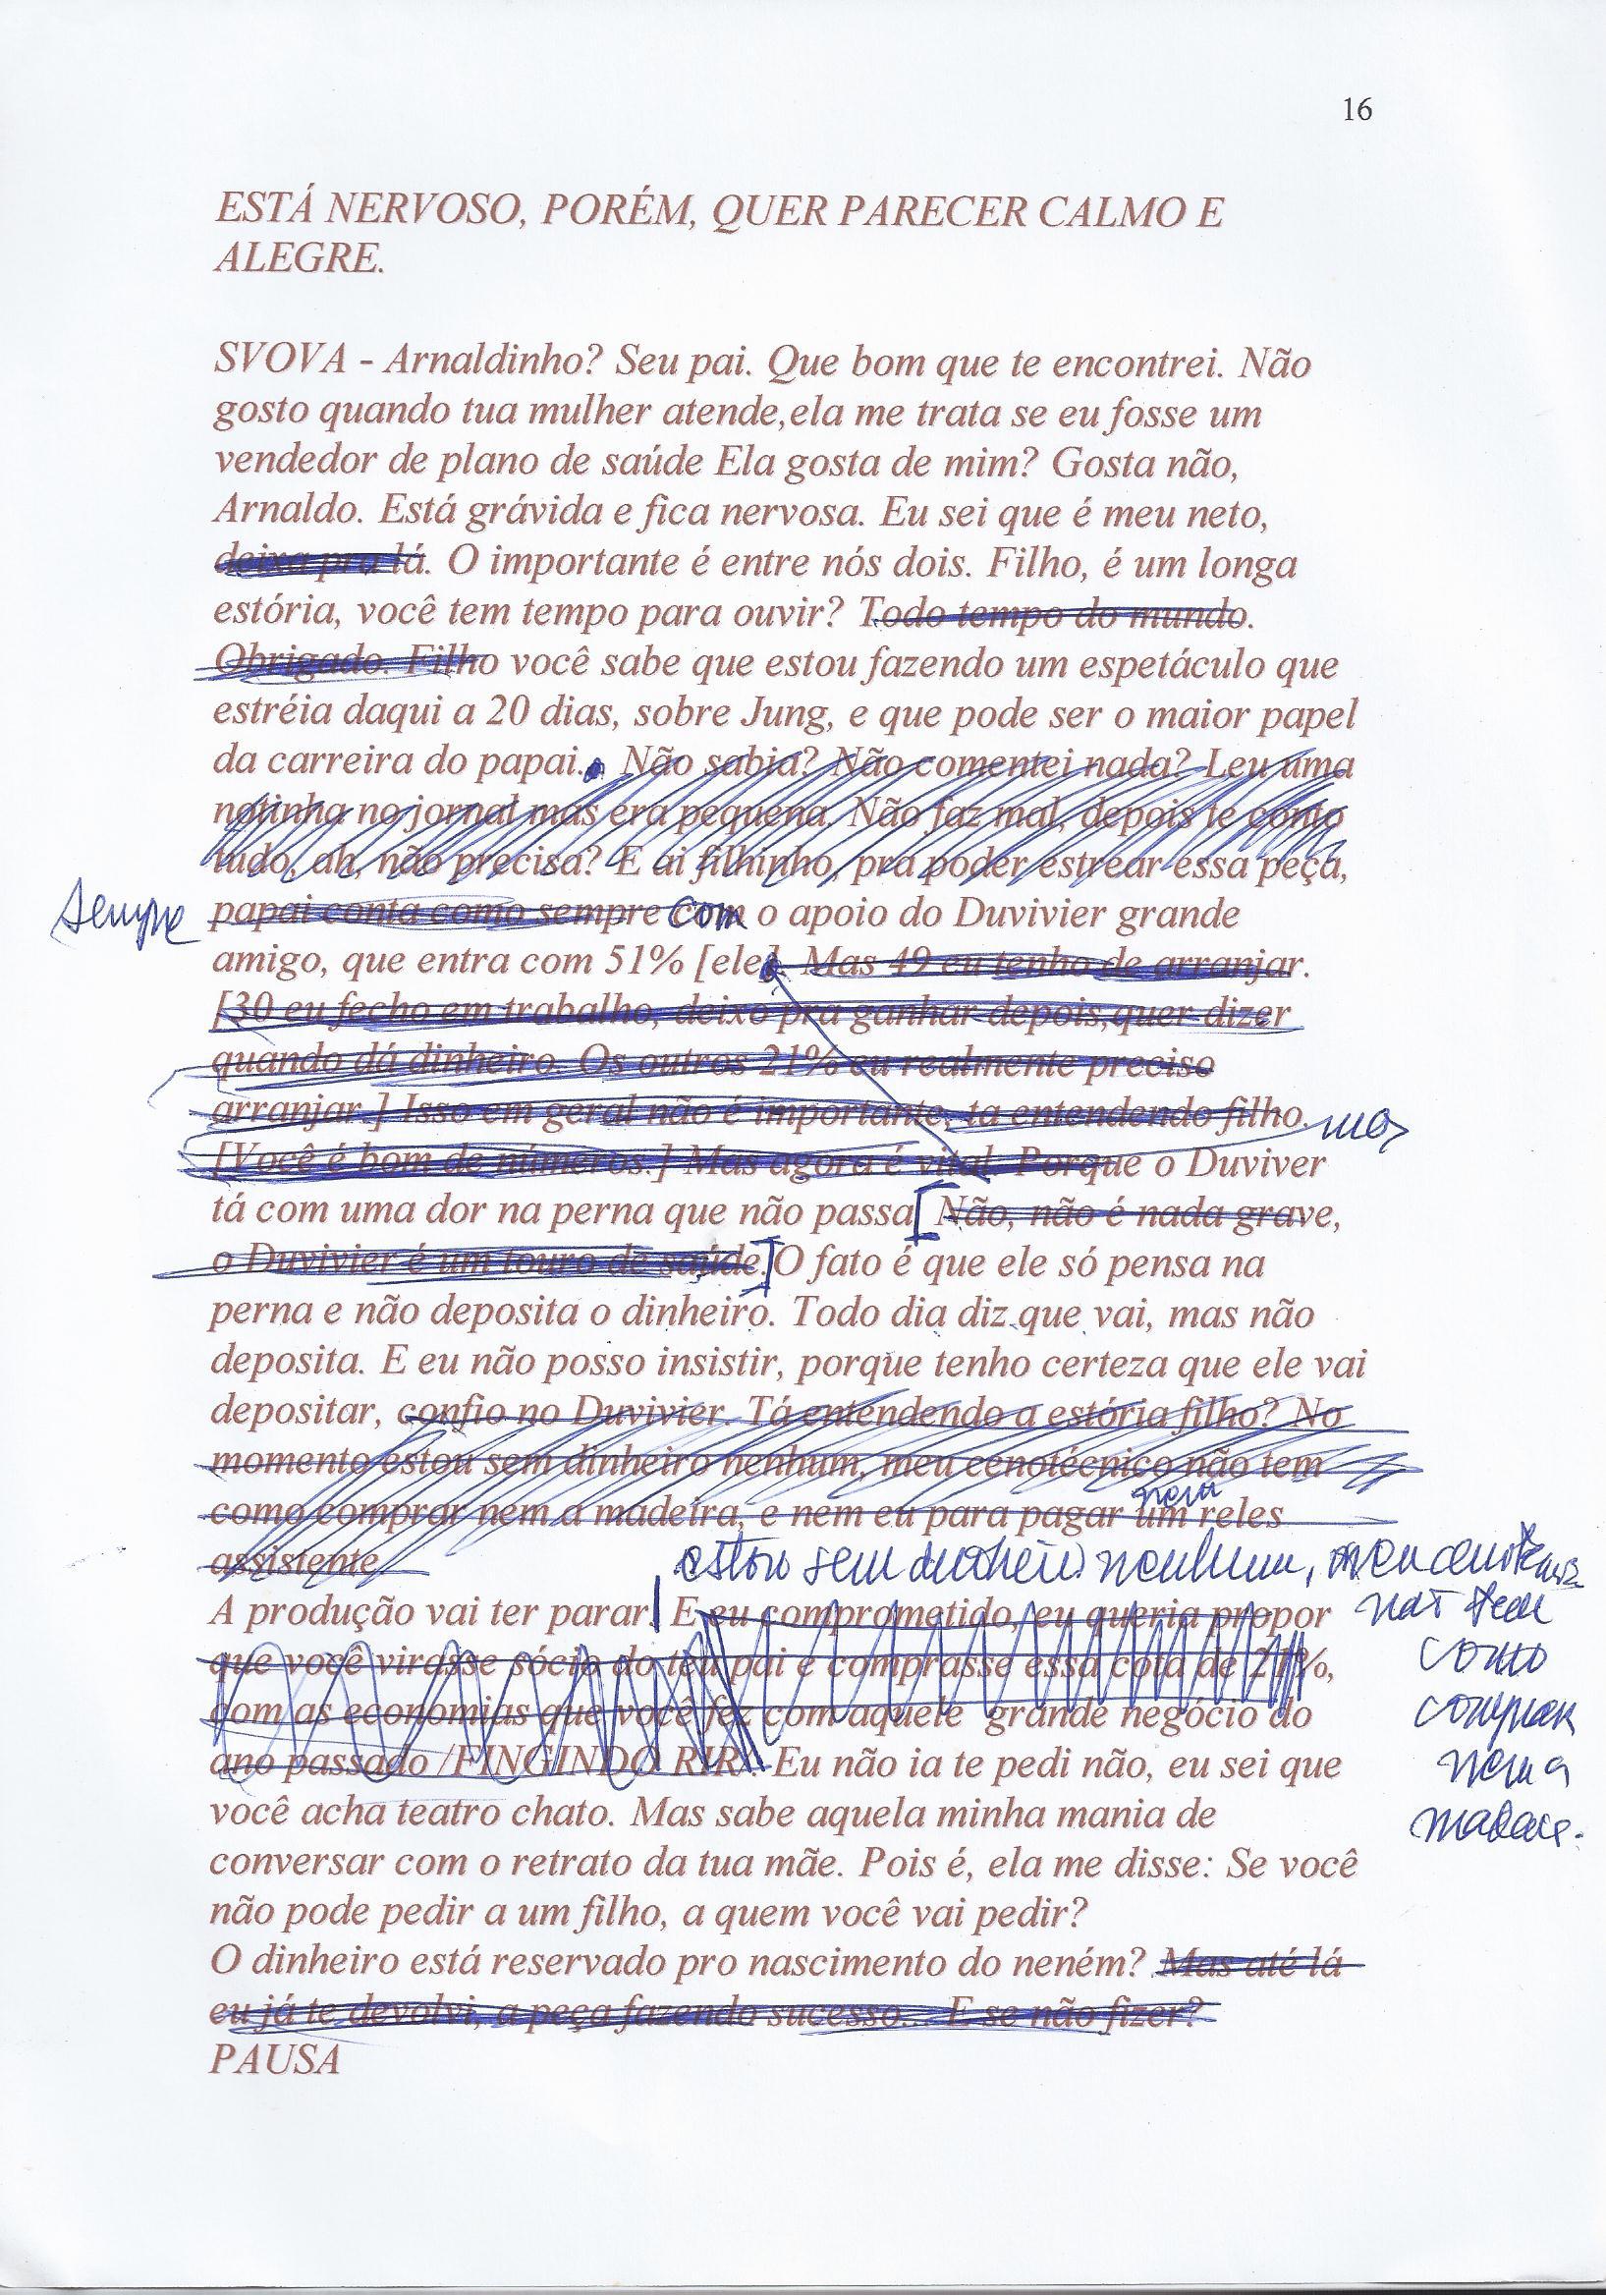 16
ESTÁ NERVOSO, PORÉM, QUER PARECER CALMO E
ALEGRE.
SVOVA - Arnaldinho? Seu pai. Que bom que te encontrei. Não
gosto quando tua mulher atende,ela me trata se eu fosse um
vendedor de plano de saúde Ela gosta de mim? Gosta não,
Arnaldo. Está grávida e fica nervosa. Eu sei que é meu neto,
deixa pra lá. O importante é entre nós dois. Filho, é um longa
estória, você tem tempo para ouvir? Todo tempo do mundo.
Obrigado. Filho você sabe que estou fazendo um espetáculo que
estréia daqui a 20 dias, sobre Jung, e que pode ser o maior papel
da carreira do papai. Não sabia? Não comentei nada? Leu uma
notinha no jornal mas era pequena. Não faz mal, depois te conto
tudo, ah, não precisa? E ai filhinho, pra poder estrear essa peça,
sempre papai conta como sempre com o apoio do Duvivier grande
amigo, que entra com 51% [ele]. Mas 49 eu tenho de arranjar.
[30 eu fecho em trabalho, deixo pra ganhar depois,quer dizer
quando dá dinheiro. Os outros 21% eu realmente preciso
arranjar.] Isso em geral não é importante, ta entendendo filho. mas
[Você é bom de números.] Mas agora é vital. Porque o Duviver
tá com uma dor na perna que não passa[ Não, não é nada grave,
o Duvivier é um touro de saúde.]O fato é que ele só pensa na
perna e não deposita o dinheiro. Todo dia diz que vai, mas não
deposita. E eu não posso insistir, porque tenho certeza que ele vai
depositar, confio no Duvivier. Tá entendendo a estória filho? No
momento estou sem dinheiro nenhum, meu cenotécnico não tem
como comprar nem a madeira, e nem eu para pagar um reles
nem
assistente
estou sem dinheiro nenhum, meu cenotécnico
não tem
como
comprar
nem a
madeira.
A produção vai ter parar. E eu comprometido, eu queria propor
que você virasse sócio do teu pai e comprasse essa cota de 21%,
com as economias que você fez com aquele grande negócio do
ano passado /FINGINDO RIR/. Eu não ia te pedi não, eu sei que
você acha teatro chato. Mas sabe aquela minha mania de
conversar com o retrato da tua mãe. Pois é, ela me disse: Se você
não pode pedir a um filho, a quem você vai pedir?
O dinheiro está reservado pro nascimento do neném? Mas até lá
eu já te devolvi, a peça fazendo sucesso... E se não fizer?
PAUSA